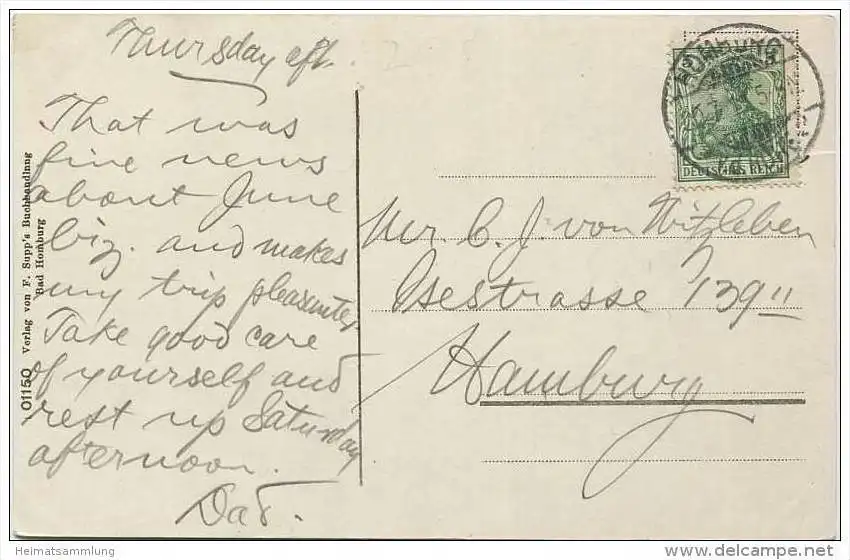 Thursday aft.
That was
fine news
about June
biz. and makes
my trip pleasanter.
Take good care
of yourself and
rest up Saturday
afternoon.
Dad.
01150 Verlag von F. Supp's Buchhandlung
Bad Homburg
HOMBURG
DEUTSCHES REICH
Mr. C. J. von Witzleben
Isestrasse 139 II
Hamburg
Heimatsammlung
www.delcampe.net